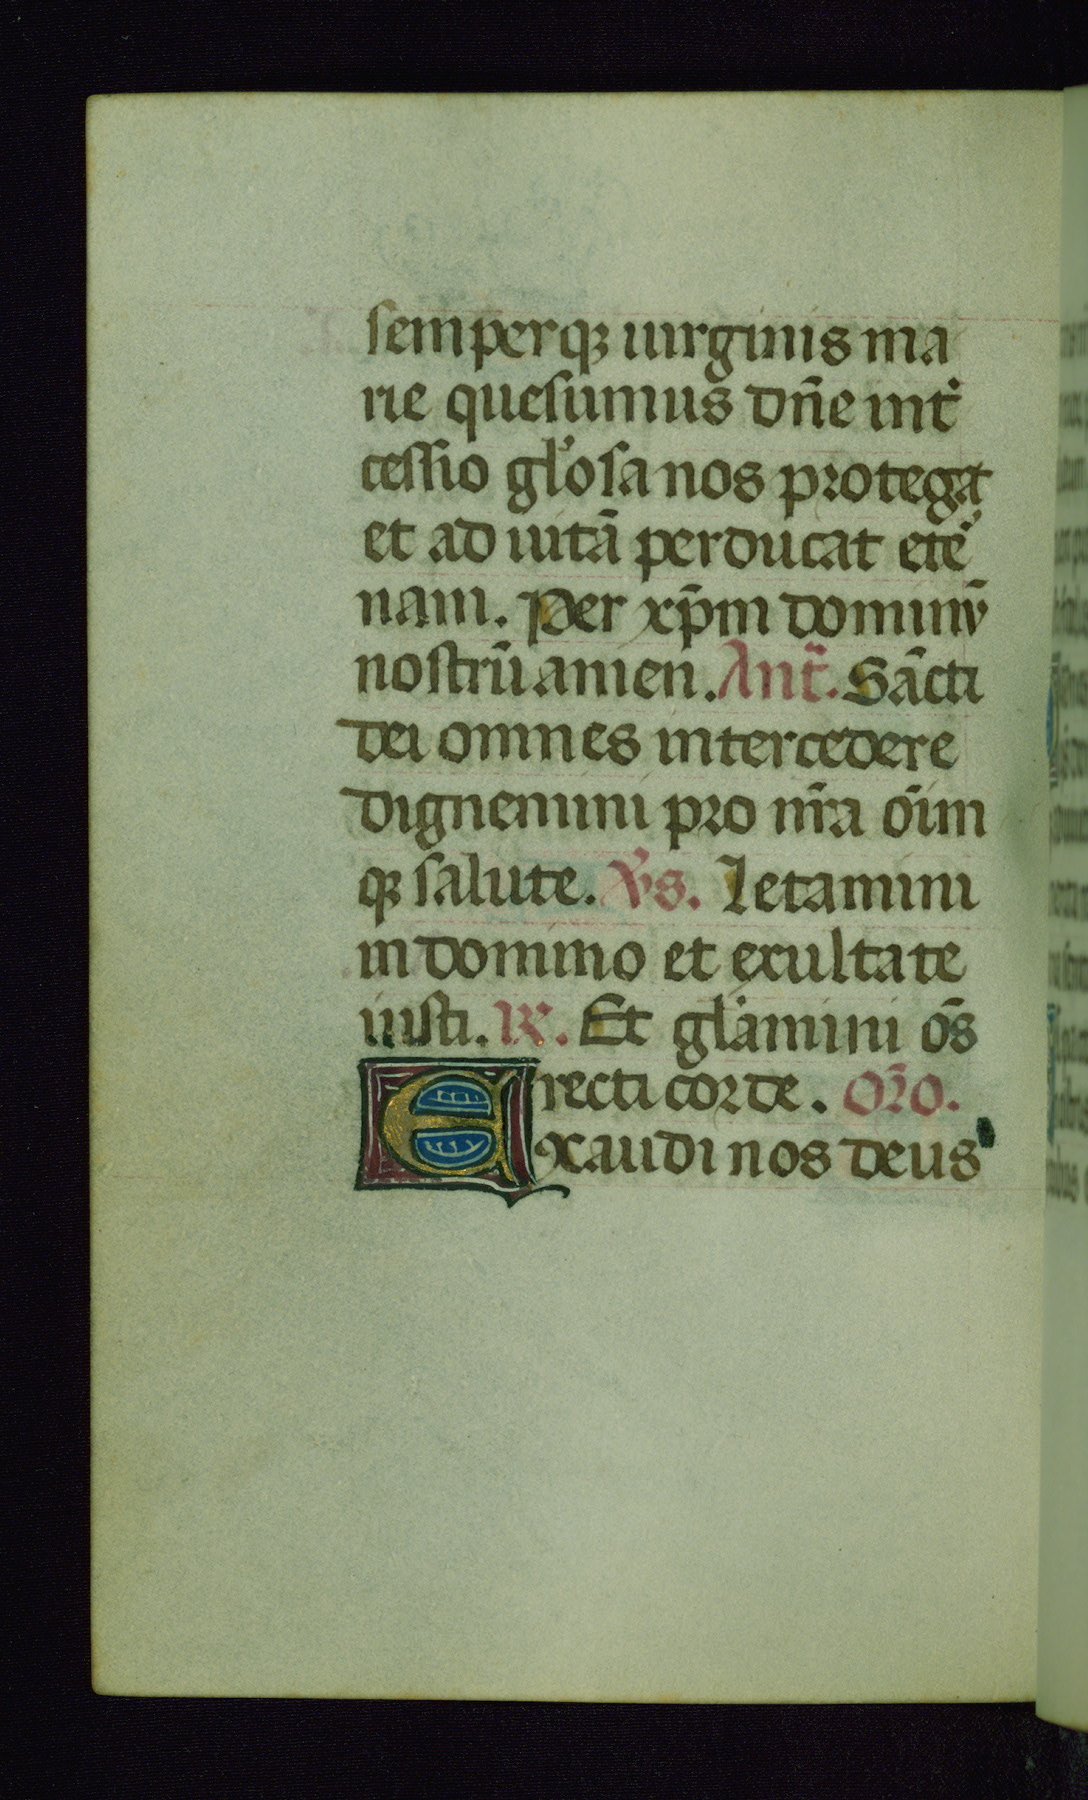 semperqꝫ uirginis ma
rie quesumus dn̄e int᷑
cessio gl'osa nos protegat
et ad uitā perducat ete᷑
nam. Per xp̄m dominū
nostrū amen. Ant̄. Sācti
dei omnes intercedere
dignemini pro nr̄a oīm
qꝫ salute. V̄s. Letamini
in domino et exultate
iusti. R̸. Et gl'amini os̄
recti corde. Or̄o.
Exaudi nos deus